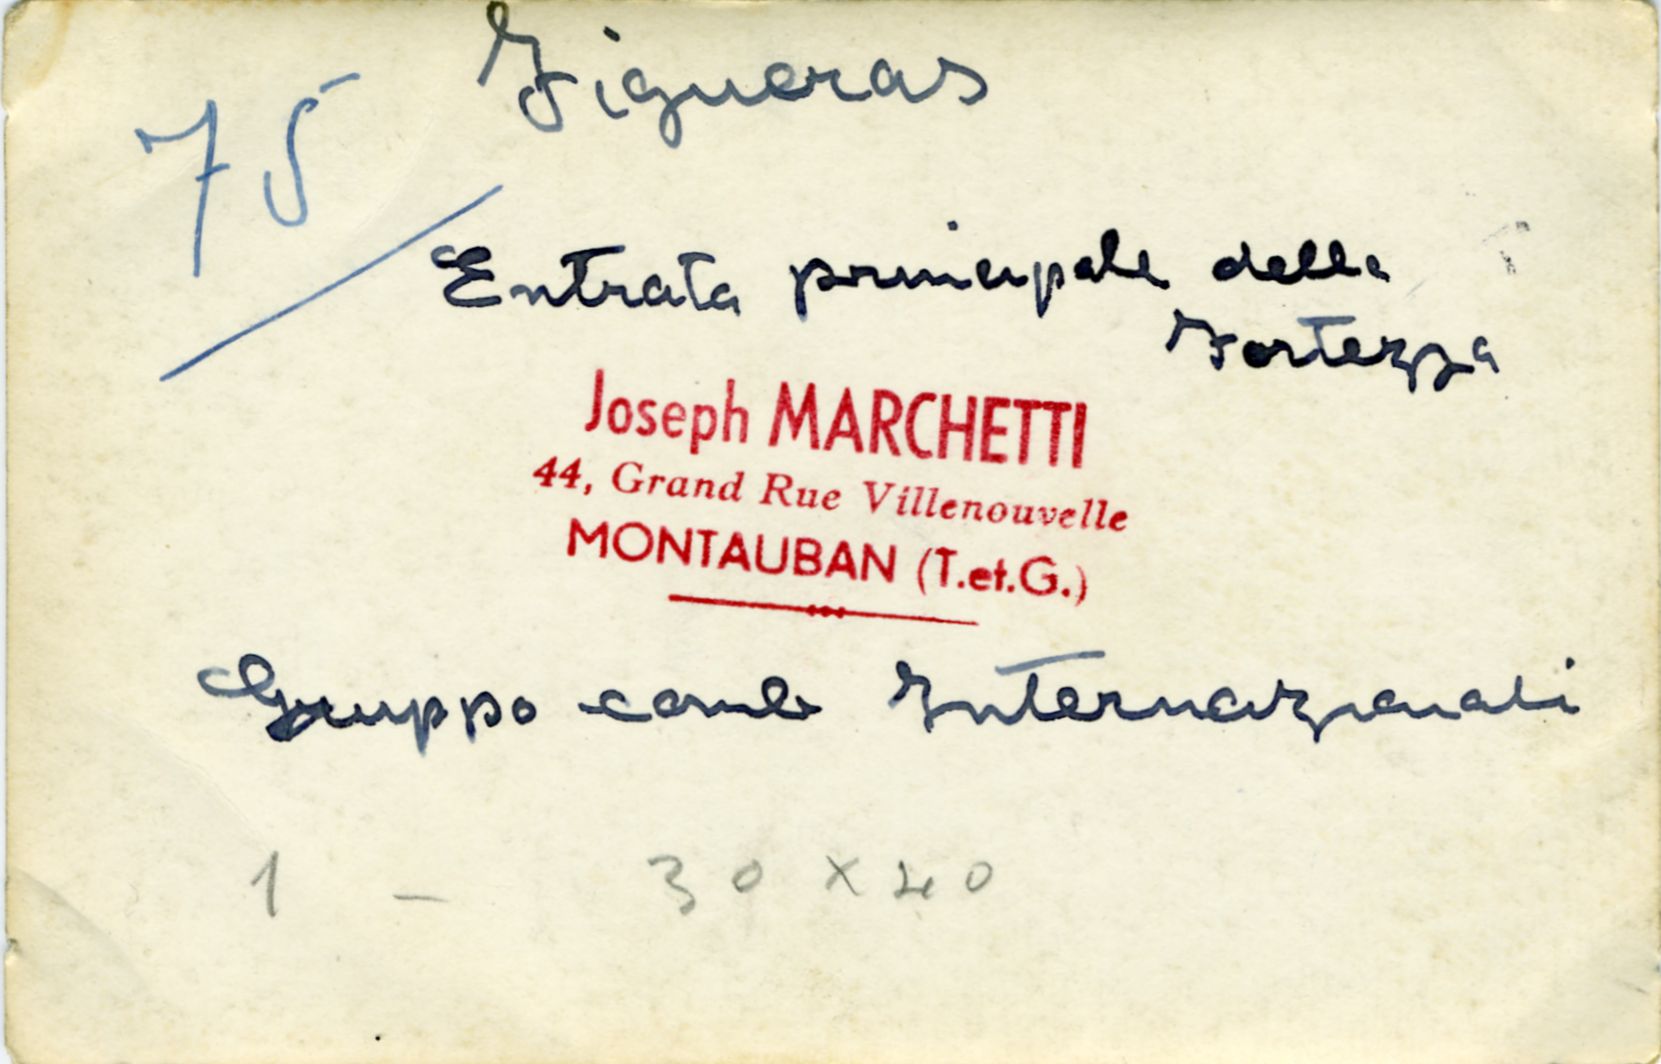 Figueras
75
Entrata principale della
Fortezza
Joseph MARCHETTI
44, Grand Rue Villenouvelle
MONTAUBAN (T.et.G.)
Gruppo Internazionali
1 - 30 x 40